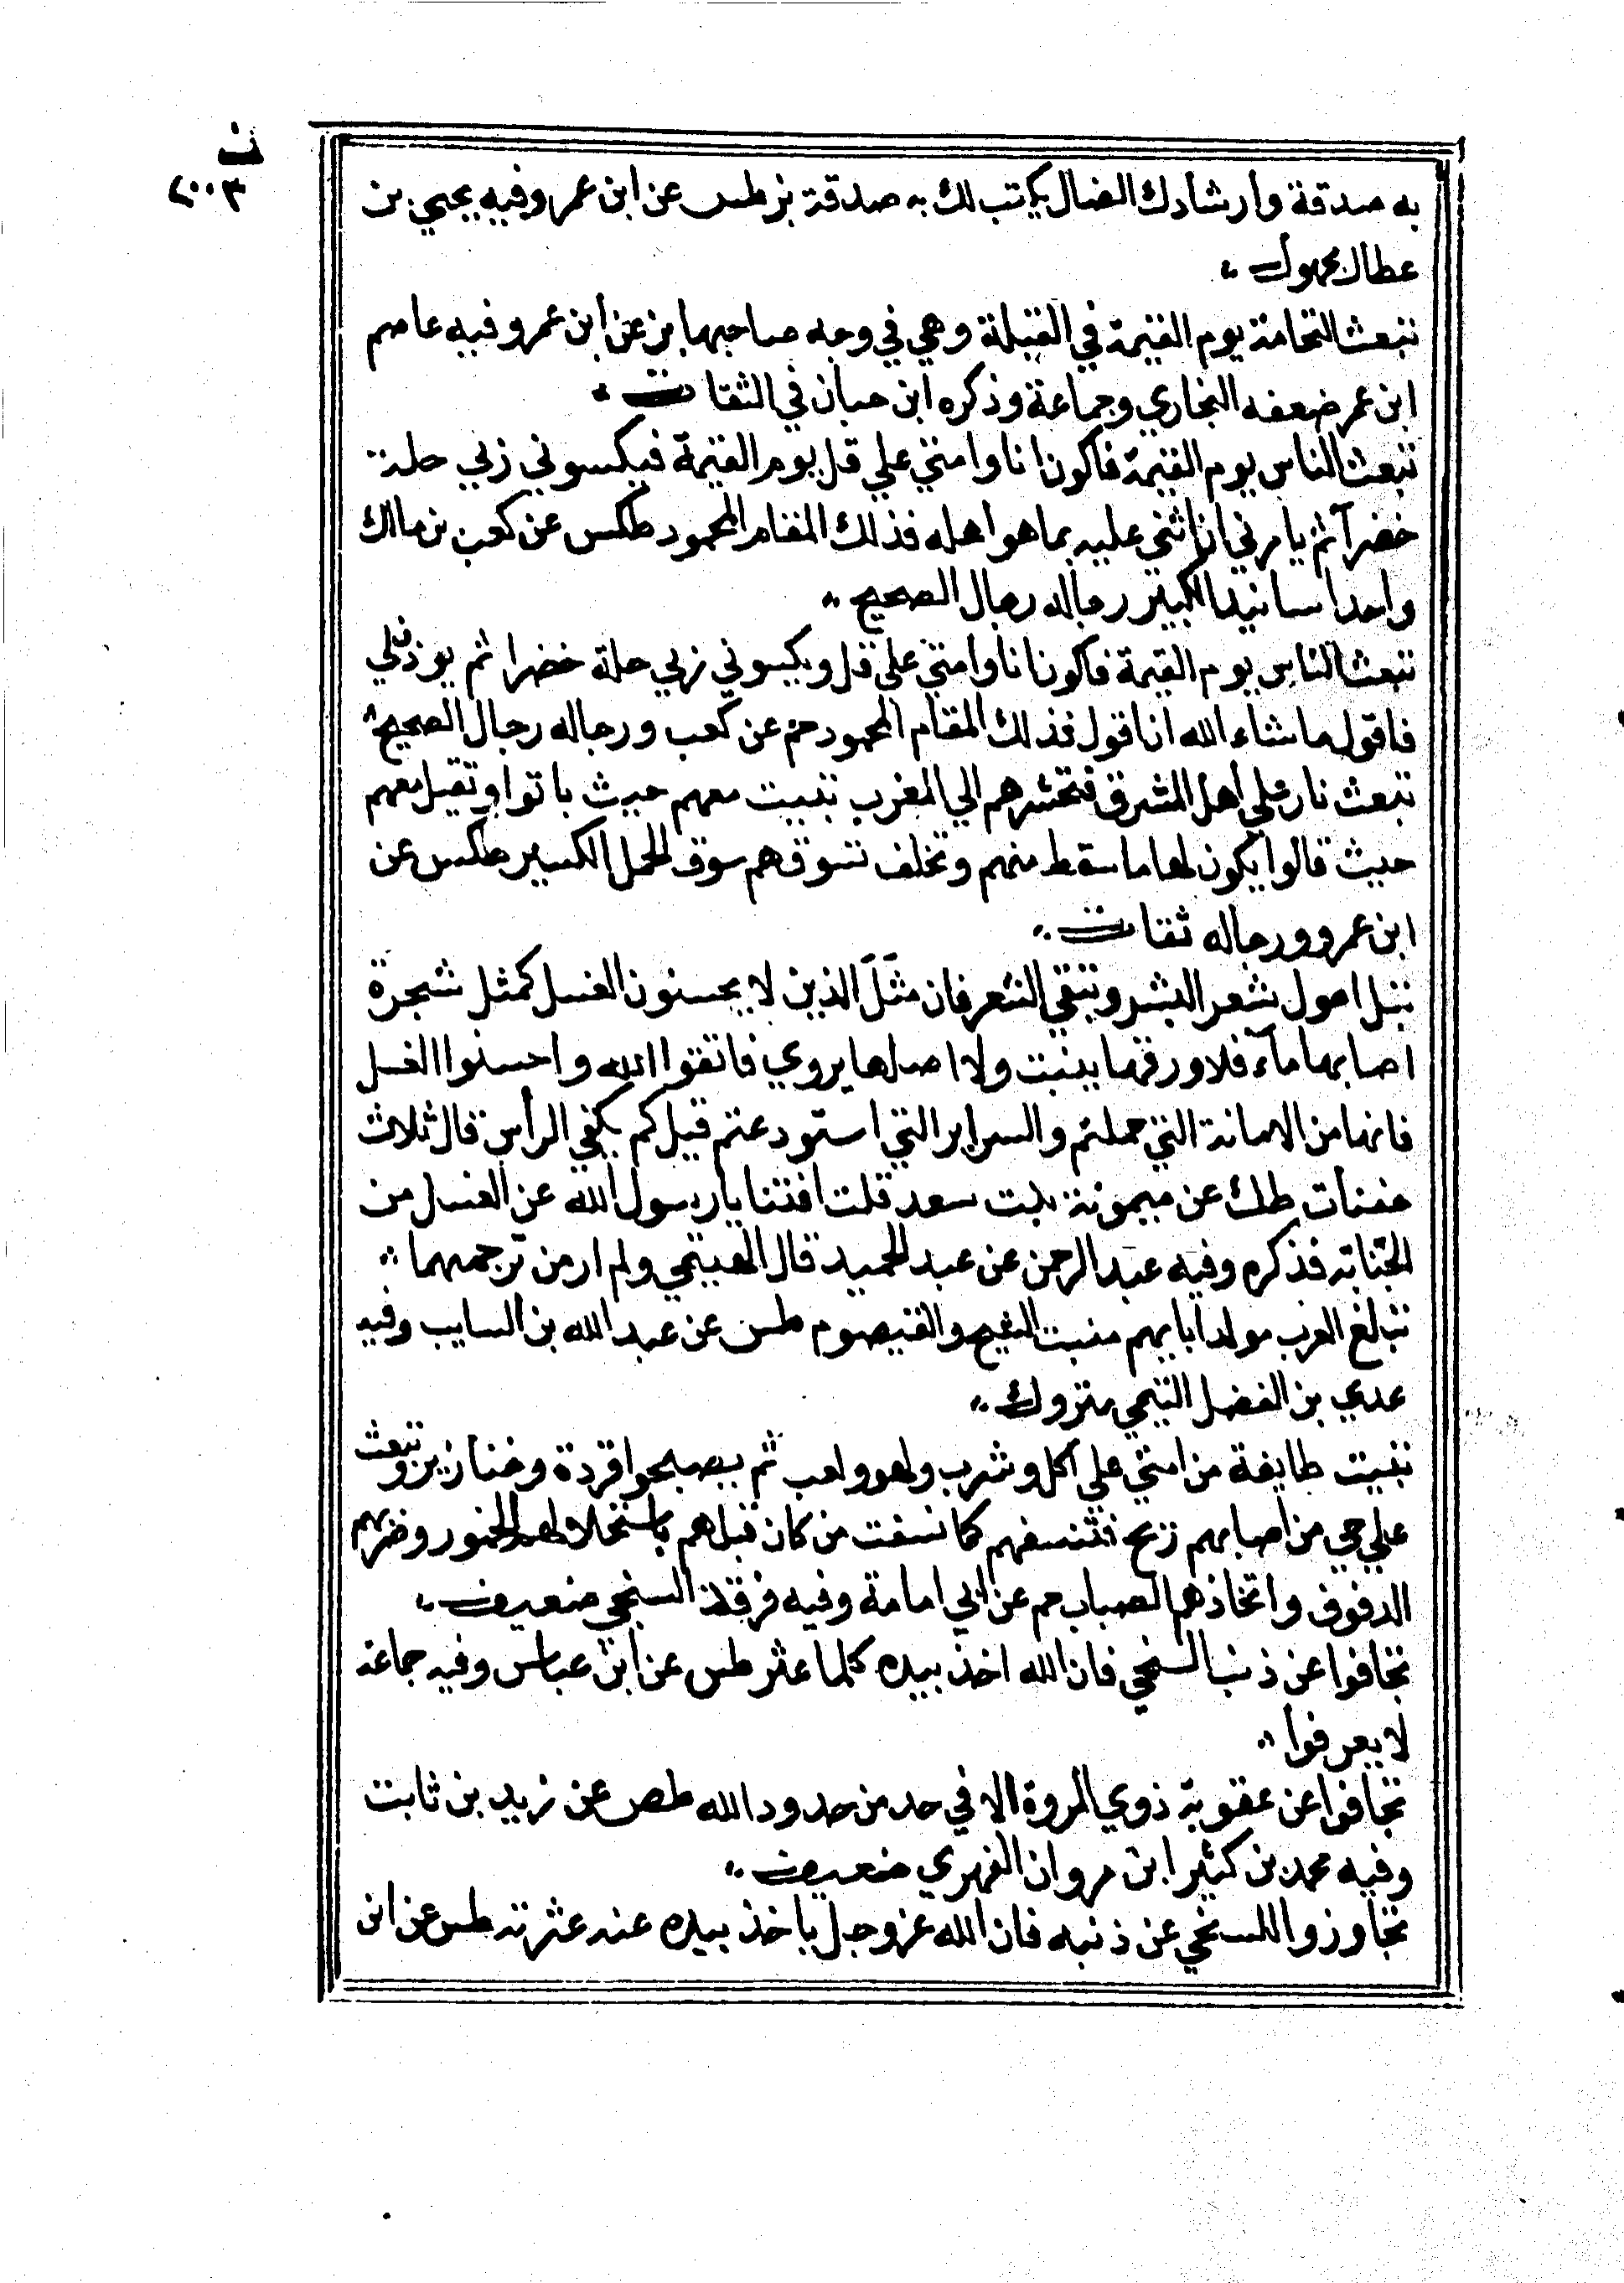 ت
٢٠٠٣
به صدقة وأرشادك الضال يكتب لك به صدقة بز طس عن ابن عمر وفيه يحيي بن
عطاك مجهول
تبعث النخامة يوم القيمة في القبلة وهي في وجه صاحبها بز عن ابن عمر وفيه عاصم
ابن عمر ضعفه البخاري وجماعة وذكره ابن حبان في الثقات
تبعث الناس يوم القيمة فاكون انا وامتي علي تل يوم القيمة فيكسوني ربي حلة
خضرآ ثم يامرني ان اثني عليه بما هو اهله فذلك المقام المحمود طكس عن كعب بن مالك
واحد اسانيد الكبير رجاله رجال الصحيح
تبعث الناس يوم القيمة فاكون انا وامتي على تل ويكسوني ربي حلة خضرا ثم يوذن لي
فاقول ما شاء الله ان اقول فذلك المقام المحمود حم عن كعب ورجاله رجال الصحيح
تبعث نار علي أهل المشرق فتحشرهم الي المغرب تبيت معهم حيث باتوا وتقيل معهم
حيث قالوا يكون لها ما سقط منهم وتخلف تسوقهم سوق الجمل الكسير طكس عن
ابن عمرو ورجاله ثقات
تبل اصول شعر البشر وتنقي الشعر فان مثل الذين لا يحسنون الغسل كمثل شجرة
اصابها مآء فلا ورقها ينبت ولا اصلها يروي فاتقوا الله واحسنوا الغسل
فانها من الامانة التي حملتم والسراير التي استودعتم قيل كم يكفي الرأس قال ثلاث
حفنات طك عن ميمونة بنت سعد قلت افتنا يا رسول الله عن الغسل من
الجنابة فذكره وفيه عبد الرحمن عن عبد الحميد قال الهيتمي ولم ار من ترجمهما
تبلغ العرب مولد ابايهم منبت الشيح والقيصوم طس عن عبد الله بن السايب وفيه
عدي بن الفضل التيمي متروك
تبيت طايفة من امتي علي اكل وشرب ولهو ولعب ثم يصبحوا قردة وخنازير وتبعث
علي حي من اصابهم ريح فتنسفهم كما نسفت من كان قبلهم باستحلالهم الخمور وضربهم
الدفوف واتخاذهم حم عن ابي امامة وفيه فرقد السبخي ضعيف
تجافوا عن ذنب السخي فان الله اخذ بيده كلما عثر طس عن ابن عباس وفيه جماعة
لا يعرفوا
تجافوا عن عقوبة ذوي المروة الا في حد من حدود الله طص عن زيد بن ثابت
وفيه محمد بن كثير ابن مروان الفهري ضعيف
تجاوزوا للسخي عن ذنبه فان الله عز وجل ياخذ بيده عند عثرته طس عن ابن